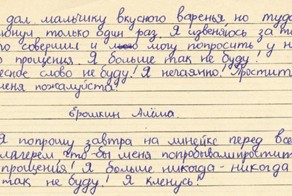 дал мальчику вкусного варенья, но туда
только один раз. Я извеняюсь за то
совершил и могу попросить у н
прощения. Я больше так не буду!
слово не буду! Я нечаянно! Простите
меня пожалуйста!
Бромкин Алёша.
Я попрошу завтра на линейке перед все
лагерем что бы меня попробывали простит
прощения! Я больше никогда-никогда
так не буду! Я кленусь!